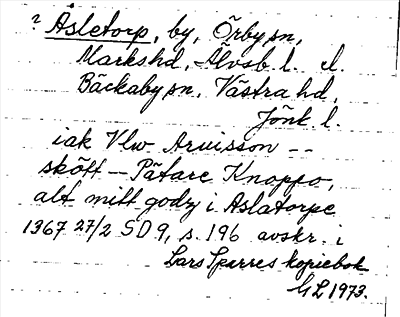 ? Åsletorp, by, Örby sn,
Markshd, Älvsb. l. el.
Bäckaby sn, Västra hd,
Jönk. l.
iak Vlw Aruisson --
skött - Pätare Knoppo,
alt mitt godz i Aslatorpe
1367 27/2 SD 9, s. 196 avskr. i
Lars Sparres kopiebok
GL 1973.